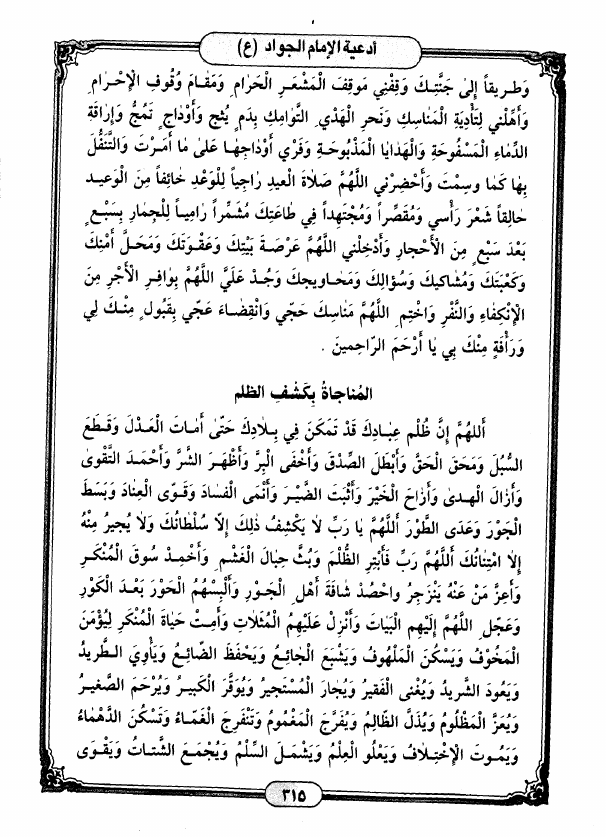 أدعية الإمام الجواد (ع)
وَطَريقاً إلىٰ جَنَّتِكَ وَقِفْنِي مَوقِفَ الْمَشْعَرِ الْحَرَامِ وَمَقَامَ وُقُوفِ الْإِحْرامِ
وَأَهِّلْني لِتَأدِيَةِ الْمَنَاسِكِ وَنَحرِ الْهَدْيِ التَّوامِكِ بِدَمٍ يُثِجُ وَأَوْداجٍ تَمُجُّ وَإراقَةِ
الدِّماءِ الْمَسْفُوحَةِ وَالْهَدايَا الْمَذْبُوحَةِ وَفَرْي أَوْداجِهَا عَلىٰ مَا أَمَرْتَ وَالتَّنَفُّلِ
بِهَا كَمَا وسِمْتَ وَأَحْضِرْنِي اللَّهُمَّ صَلاَةَ العِيدِ رَاجِياً لِلْوَعْدِ خَائِفاً مِنَ الْوَعِيدِ
حَالِقاً شَعْرَ رَأْسي وَمُقَصِّراً وَمُجْتَهِداً فِي طَاعَتِكَ مُشَمِّراً رَامِياً لِلْجِمَارِ بِسَبْعٍ
بَعْدَ سَبْعٍ مِنَ الأَحْجارِ وَأَدْخِلْنِي اللَّهُمَّ عَرْصَةَ بَيْتِكَ وَعَقْوَتَكَ وَمَحَلَّ أَمْنِكَ
وَكَعْبَتَكَ وَمُشَاكِيكَ وَسُؤَالِكَ وَمَحَاوِيجِكَ وَجُدْ عَلَيَّ اللَّهُمَّ بِوَافِرِ الْأَجْرِ مِنَ
الْإِنْكِفَاءِ وَالنَّفْرِ وَاخْتِمِ اللَّهُمَّ مَنَاسِكَ حَجِّي وَانْقِضاءَ عَجّي بِقَبُولٍ مِنْكَ لِي
وَرَأْفَةٍ مِنْكَ بِي يَا أَرْحَمَ الرّاحِمينَ .
المُناجاةُ بِكَشْفِ الظلم
أَللهُمَّ إنَّ ظُلْمَ عِبادِكَ قَد تَمَكَنَ فِي بِلادِكَ حَتّىٰ أَماتَ الْعَدْلَ وَقَطَعَ
السُّبُلَ وَمَحَقَ الْحَقَّ وَأَبْطَلَ الصِّدْقَ وَأَخْفَى الْبِرَّ وَأَظْهَرَ الشَّرَّ وَأَحْمَدَ التَّقْوىٰ
وَأَزالَ الْهدىٰ وَأَزاحَ الْخَيْرَ وَأَثْبَتَ الضَّيْرَ وَأَنْمَى الْفَسادَ وَقَوّى الْعِنادَ وَبَسَطَ
الْجَوْرَ وَعَدَى الطَّوْرَ أَللَّهُمَّ يَا رَبِّ لاَ يَكْشِفُ ذٰلِكَ إلاّ سُلْطَانُكَ وَلاَ يُجِيرُ مِنْهُ
إلاّ امْتِنانُكَ أَللَّهُمَّ رَبِّ فَأَبْتِرِ الظُّلْمَ وَبُثَّ حِبالَ الْغَشْمِ وَأَخْمِدْ سُوقَ الْمُنْكَرِ
وَأَعِزَّ مَنْ عَنْهُ يَنْزَجِرُ واحْصُدْ شَاقَةَ أَهْلِ الْجَوْرِ وَأَلْبِسْهُمُ الْحَوْرَ بَعْدَ الْكَوْرِ
وَعَجِّلِ اللَّهُمَّ إلَيْهِمِ الْبَيَاتَ وَأَنْزِلْ عَلَيْهِمُ الْمُثَلاتِ وَأَمِتْ حَيَاةَ الْمُنْكَرِ لِيُؤْمَنَ
الْمَخُوْفُ وَيَسْكُنَ الْمَلْهُوفُ وَيَشْبَعَ الْجَائِعُ وَيَحْفَظَ الضَّائِعُ وَيَأْوِيَ الطَّريدُ
وَيَعُودَ الشَّريدُ وَيُغْنَى الْفَقيرُ وَيُجارَ الْمُسْتَجيرُ وَيُوَقَّرَ الْكَبيرُ وَيُرْحَمَ الصَّغيرُ
وَيُعَزَّ الْمَظْلُومُ وَيُذَلَّ الظَّالِمُ وَيُفَرَّجَ الْمَغْمُومُ وَتَنْفَرِجَ الْغَمّاءُ وَتَسْكُنَ الدَّهْماءُ
وَيَمُوتَ الْإِخْتِلافُ وَيَعْلُوِ العِلْمُ وَيَشْمَلَ السِّلْمُ وَيُجْمَعَ الشَّتاتُ وَيَقْوَى
٣١٥